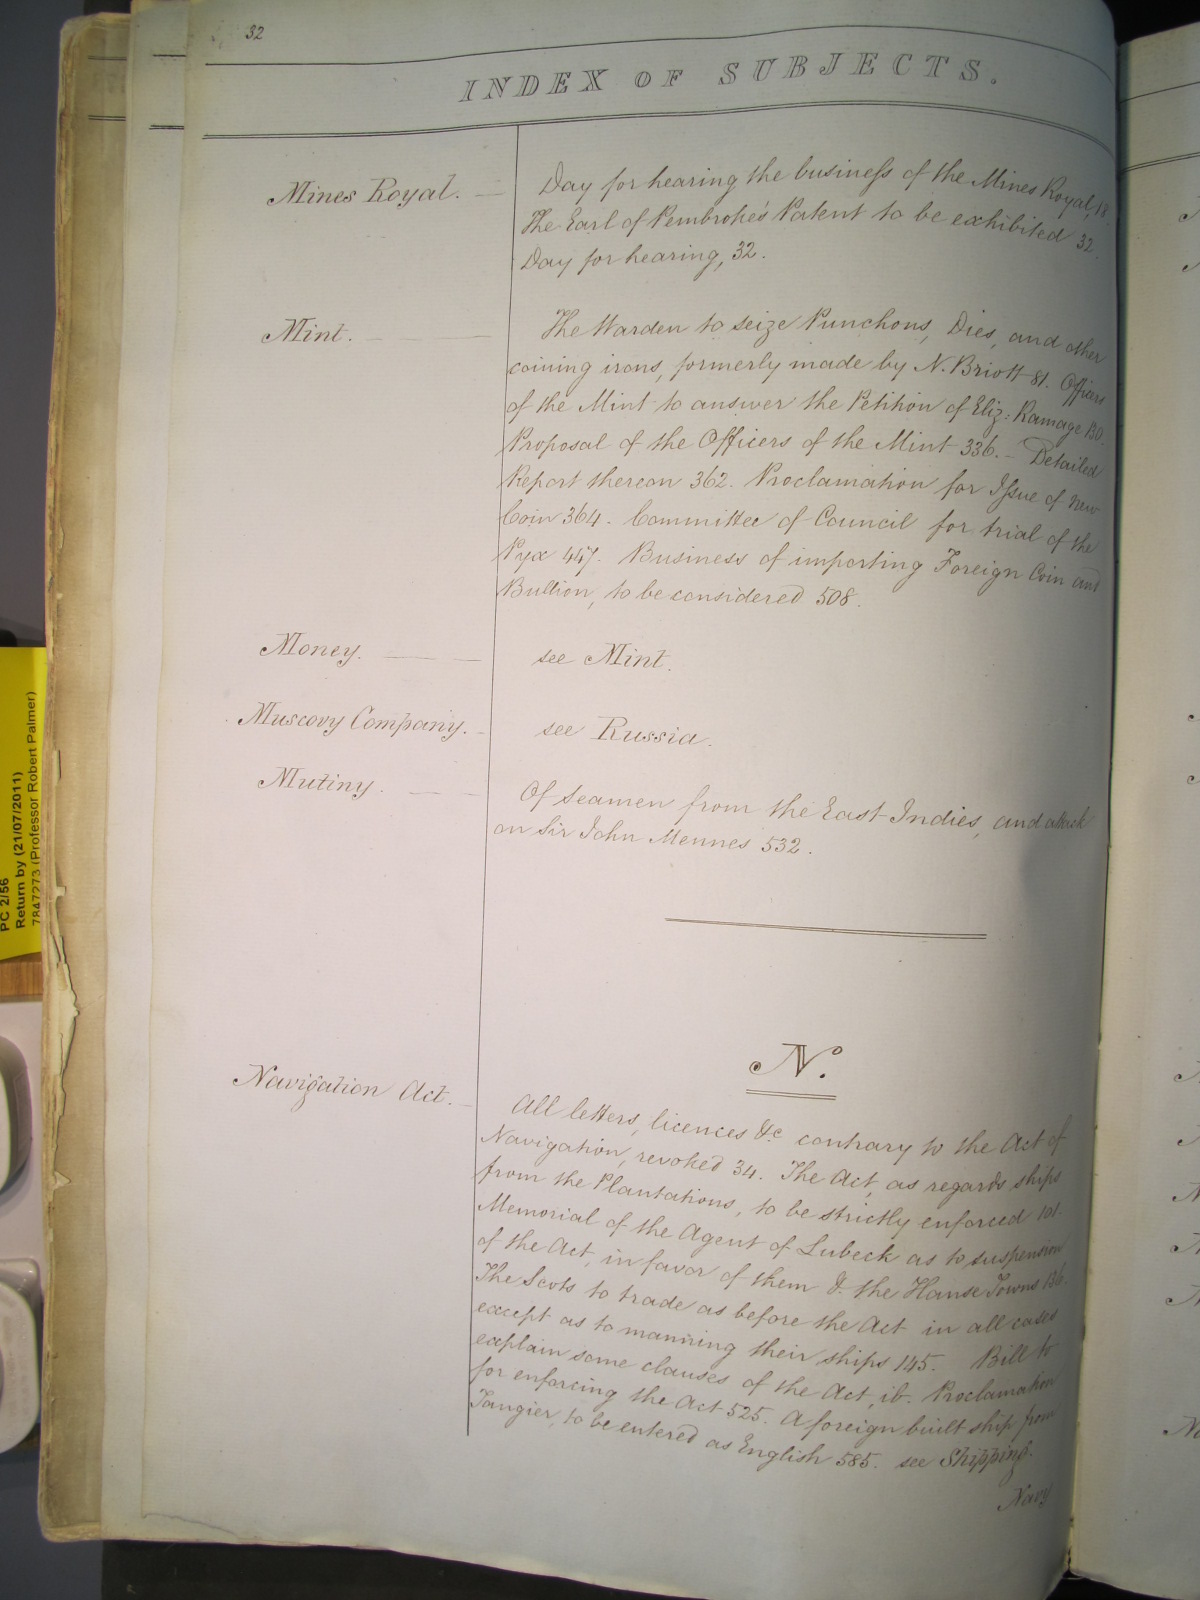 32
INDEX OF SUBJECTS.
Mines Royal.
Day for hearing the business of the Mines Royal, 18.
The Earl of Pembroke's Patent to be exhibited 32.
Day for hearing, 32.
Mint.
The Warden to seize Punchons, Dies, and other
coining irons, formerly made by N. Briott 81. Officers
of the Mint to answer the Petition of Eliz: Ramage 130.
Proposal of the Officers of the Mint 336. - Detailed
Report thereon 362. Proclamation for Issue of New
Coin 364. Committee of Council for trial of the
Pyx 447. Business of importing Foreign Coin and
Bullion, to be considered 508.
Money.
see Mint.
Muscovy Company.
see Russia.
Mutiny.
Of seamen from the East Indies, and attack
on Sir John Mennes 532.
N.
Navigation Act.
All letters, licences &c contrary to the Act of
Navigation, revoked 34. The Act, as regards ships
from the Plantations, to be strictly enforced 101.
Memorial of the Agent of Lubeck as to suspension
of the Act, in favor of them & the Hanse Towns 136.
The Scots to trade as before the Act in all cases
except as to manning their ships 145. Bill to
explain some clauses of the Act, ib. Proclamation
for enforcing the Act 525. A foreign built ship from
Tangier, to be entered as English 585. see Shipping.
Navy
PC 2/56
Return by (21/07/2011)
7847273 (Professor Robert Palmer)